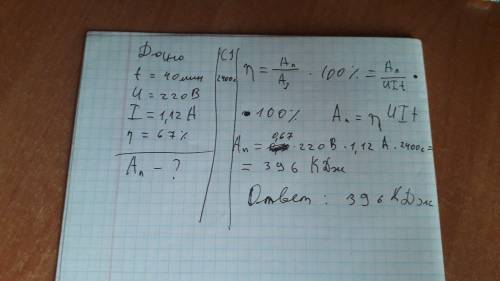 Дано
t = 40 мин
U = 220 В
I = 1,12 А
η = 67%
Aп – ?
СИ
2400с
η = Aп/Aз · 100% = Aп/UIt ·
· 100%   Aп = η UIt
Aп = 0,67 · 220 В · 1,12 А · 2400с =
= 396 КДж
Ответ: 396 КДж